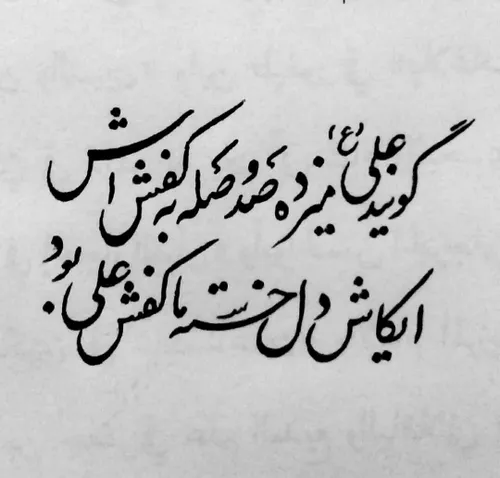 گویند علی (ع) میزده صد وصله به کفش اش
ایکاش دل خسته ما کفش علی بود